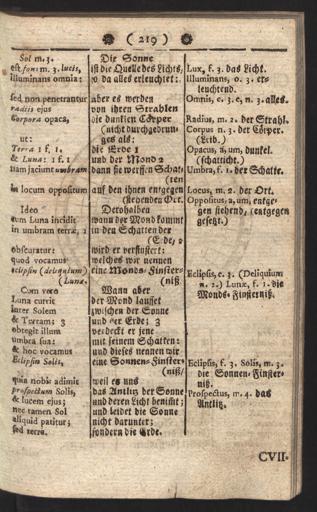 ( 219 )
Sol m. 3.
est fons m. 3. lucis,
illuminans omnia:
sed non penetrantur
radiis ejus
Corpora opaca,
ut:
Terra 1 f. 1.
& Luna: 1 f. 1
nam jaciunt umbram
in locum oppositum
Ideo
cum Luna incidit
in umbram terræ, 2
obscuratur:
quod vocamus
eclipsin (deliquium)
(Lunæ.
Cum vero
Luna currit
inter Solem
& Terram: 3
obtegit illum
umbra sua:
& hoc vocamus
Eclipsin Solis,
quia nobis adimit
prospectum Solis,
& lucem ejus;
nec tamen Sol
aliquid patitur;
sed terra.
Die Sonne
ist die Quelle des Lichts,
so da alles erleuchtet:
aber es werden
von ihren Strahlen
die dunklen Cörper
(nicht durchgedrun-
ges als:
die Erde 1
und der Mond 2
dann sie werffen Schat-
(ten
auf den ihnen entgegen
(stehenden Ort.
Derohalben
wann der Mond kommt
in den Schatten der
(Erde, 2
wird er verfinstert:
welches wir nennen
eine Monds-Finster-
(niß.
Wann aber
der Mond lauffet
zwischen der Sonne
und der Erde; 3
verdeckt er jene
mit seinem Schatten:
und dieses nennen wir
eine Sonnen-Finster-
(niß/
weil es uns
das Antlitz der Sonne
und deren Licht benimt;
und leidet die Sonne
nicht darunter;
sondern die Erde.
Lux, f. 3. das Licht.
Illuminans, o. 3. er-
leuchtend.
Omnis, c. 3. e, n. 3. alles.
Radius, m. 2. der Strahl.
Corpus n. 3. der Cörper.
(Leib.)
Opacus, a, um, dunkel.
(schatticht.)
Umbra, f. 1. der Schatte.
Locus, m. 2. der Ort.
Oppositus, a, um, entge-
gen stehend, (entgegen
gesetzt.)
Eclipsis, e. 3. (Deliquium
n. 2.) Lunæ, f. 1. die
Monds-Finsterniß.
Eclipsis, f. 3. Solis, m. 3.
die Sonnen-Finster-
niß.
Prospectus, m. 4. das
Antlitz.
CVII.